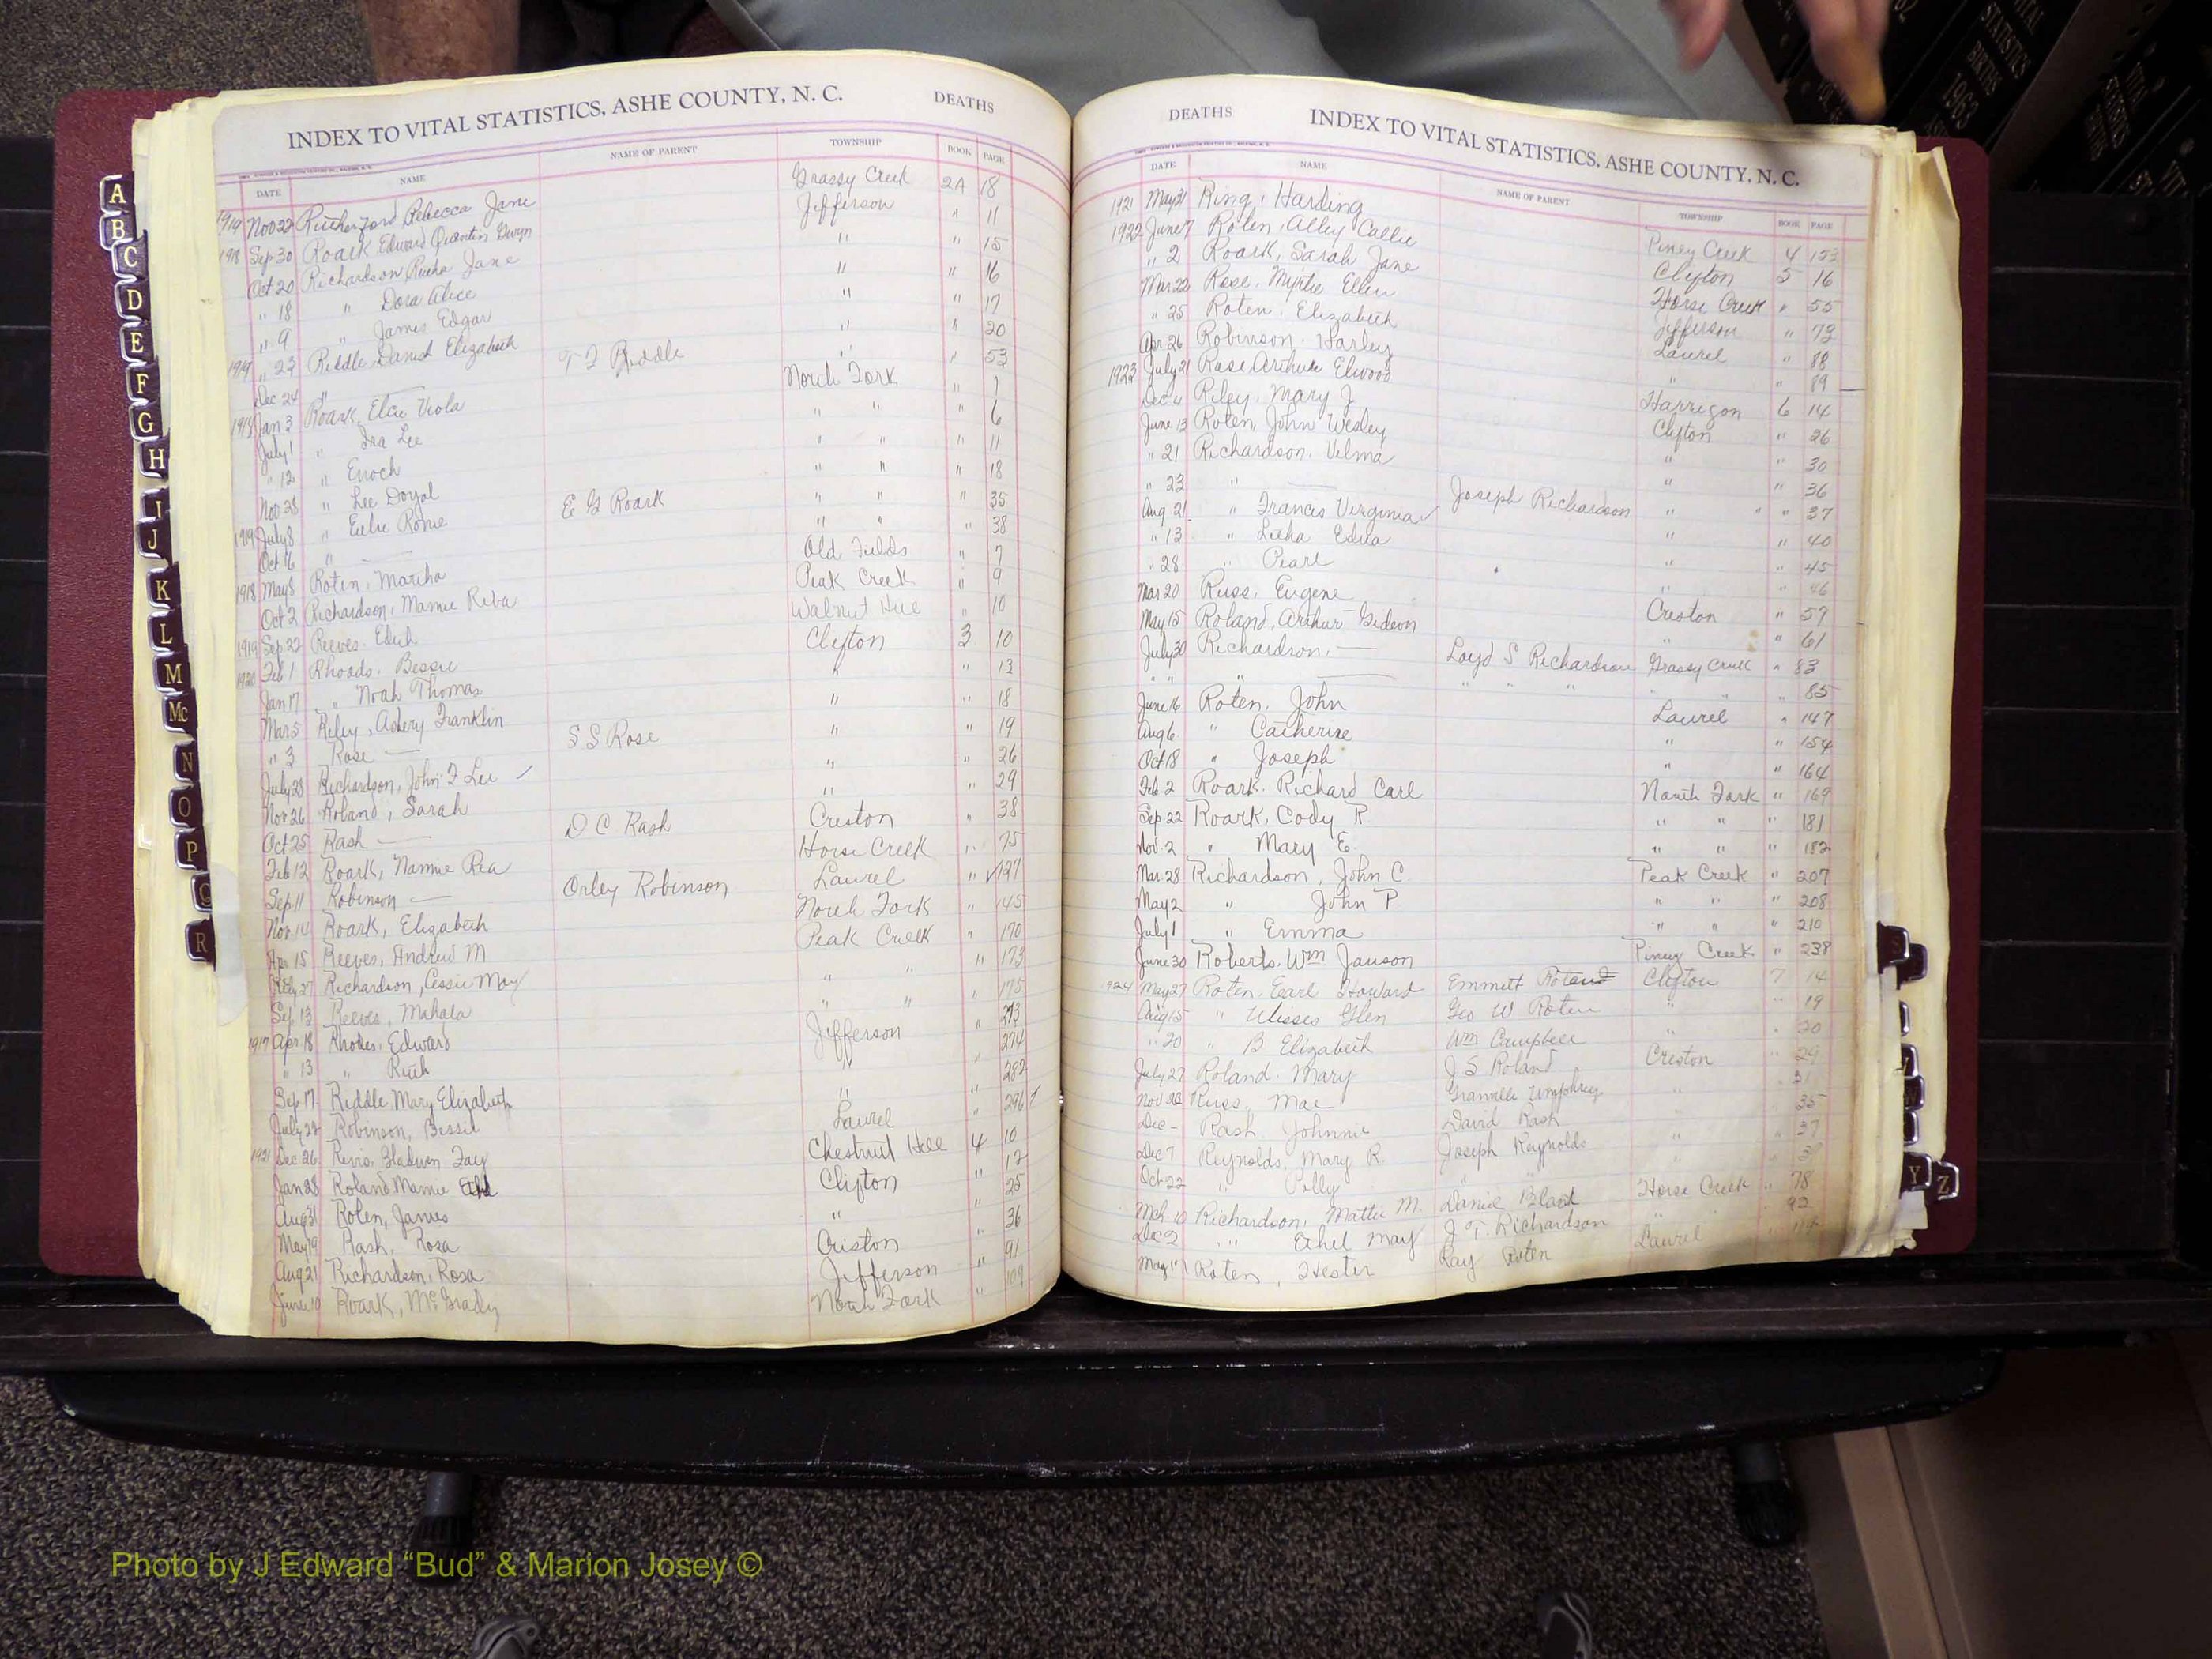 INDEX TO VITAL STATISTICS, ASHE COUNTY, N. C. DEATHS
DATE NAME NAME OF PARENT TOWNSHIP BOOK PAGE
1919 Nov 22 Rutherford Rebecca Jane Grassy Creek 2A 18
1918 Sep 30 Roark Edward Quentin Gwyn Jefferson " 11
Oct 20 Richardson Jane " " 15
" 18 " Dora Alice " " 16
" 9 " James Edgar " " 17
1919 " 23 Riddle Elizabeth " " 20
Dec 24 " Riddle " " 53
1918 Jan 3 Roark, Viola North Fork " 1
July 1 " Ira Lee " " " 6
" 12 " Enoch " " " 11
Nov 28 " Lee Doyal " " " 18
1919 July 8 " E G Roark " " " 35
Oct 16 " — " " " 38
1918 May 8 Roten, Martha Old Fields " 7
Oct 2 Richardson, Mamie Reba Peak Creek " 9
1919 Sep 22 Reeves Walnut Hill " 10
1920 Feb 1 Rhoads, Bessie Clifton 3 10
Jan 17 " Noah Thomas " " 13
Mar 5 Riley, Franklin " " 18
" 3 Rose — S S Rose " " 19
July 28 Richardson, John F Lee " " 26
Nov 26 Roland, Sarah " " 29
Oct 25 Rash — D C Rash Creston " 38
Feb 12 Roark, Nannie Rea Horse Creek " 75
Sep 11 Robinson — Orley Robinson Laurel " 127
Nov 14 Roark, Elizabeth North Fork " 145
Apr 15 Reeves, Andrew M Peak Creek " 170
27 Richardson, May " " " 173
Sep 13 Reeves, Mahala " " " 175
1917 Apr 18 Rhodes, Edward Jefferson " 273
" 13 " Ruth " " 274
Sep 17 Riddle, Mary Elizabeth " " 282
July 22 Robinson, Bessie Laurel " 296
1921 Dec 26 Gladwen Fay Chestnut Hill 4 10
Jan 28 Roland Mamie Clifton " 12
Aug 31 Roten, James " " 25
May 19 Rash, Rosa Creston " 36
Aug 21 Richardson, Rosa Jefferson " 91
June 10 Roark, McGrady North Fork " 109
DEATHS INDEX TO VITAL STATISTICS, ASHE COUNTY, N. C.
DATE NAME NAME OF PARENT TOWNSHIP BOOK PAGE
1921 May 31 Ring, Harding Piney Creek 4 153
1922 June 7 Roten, Alley Callie Clifton 5 16
" 2 Roark, Sarah Jane Horse Creek " 55
Mar 22 Rose, Myrtie Ellen Jefferson " 73
" 25 Roten, Elizabeth Laurel " 88
Apr 26 Robinson, Harley " " 89
1923 July 21 Rose, Arthur Elwood Harrigon 6 14
Dec 4 Riley, Mary J Clifton " 26
June 13 Roten, John Wesley " " 30
" 21 Richardson, Velma " " 36
" 23 " — Joseph Richardson " " 37
Aug 21 " Frances Virginia " " 40
" 13 " Letha Edna " " 45
" 28 " Pearl " " 46
Mar 20 Russ, Eugene Creston " 57
May 15 Roland, Arthur Gideon " " 61
July 30 Richardson, — Loyd S Richardson Grassy Creek " 83
" " — " " " " " 85
June 16 Roten, John Laurel " 147
Aug 6 " Catherine " " 154
Oct 18 " Joseph " " 164
Feb 2 Roark, Richard Carl North Fork " 169
Sep 22 Roark, Cody R " " " 181
Nov 2 " Mary E. " " " 182
Mar 28 Richardson, John C. Peak Creek " 207
May 2 " John P. " " " 208
July 1 " Emma " " " 210
June 30 Roberts, Wm Jauson Piney Creek " 238
1924 May 27 Roten, Earl Howard Emmett Clifton 7 14
Aug 15 " Ulisses Glen Geo W Roten " " 19
" 20 " B Elizabeth Wm Campbell " " 20
July 27 Roland, Mary J S Roland Creston " 29
Nov Russ, Mae Granville Umphrey " " 31
Dec — Rash, Johnnie David Rash " " 35
Dec 7 Reynolds, Mary R. Joseph Reynolds " " 37
Oct 22 " Polly " "
Mch 10 Richardson, Mattie M. Daniel Bland Horse Creek " 78
Dec 2 " Ethel May J T. Richardson " " 92
May Roten, Hester Ray Roten Laurel "
A
B
C
D
E
F
G
H
I
J
K
L
M
Mc
N
O
P
Q
R
S
W
Y
Z
VITAL STATISTICS BIRTHS 1963
Photo by J Edward “Bud” & Marion Josey ©